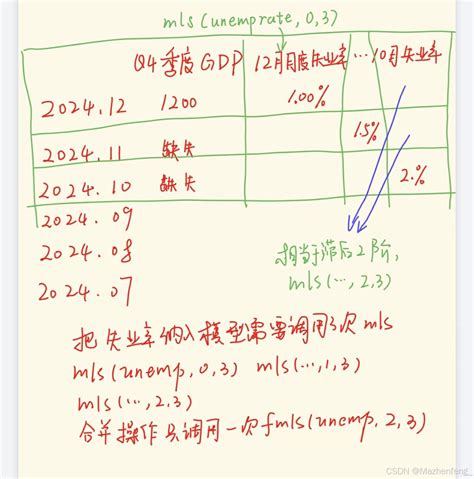 mls(unemprate, 0,3)
Q4季度GDP 12月月度失业率 … 10月失业率
2024.12 1200 1.00%
1.5%
2024.11 缺失
2024.10 缺失 2.%
2024.09
2024.08
2024.07
相当于滞后2阶,
mls(…,2,3)
把失业率纳入模型需要调用3次mls
mls(unemp,0,3) mls(…,1,3)
mls(…,2,3)
合并操作只调用一次fmls(unemp,2,3)
CSDN @Mazhenfeng_